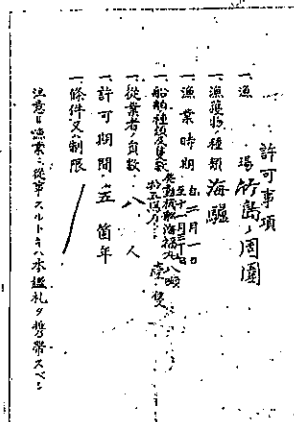 許可事項
一、漁場 竹島ノ周圍
一、漁獲物ノ種類 海驢
一、漁業時期 自二月一日
至十一月三十日
一、船舶ノ種類及隻數
一、從業者ノ員數 八人
一、許可期間 五箇年
一、條件又ハ制限
注意 漁業ニ從事スルトキハ本鑑札ヲ携帶スベシ